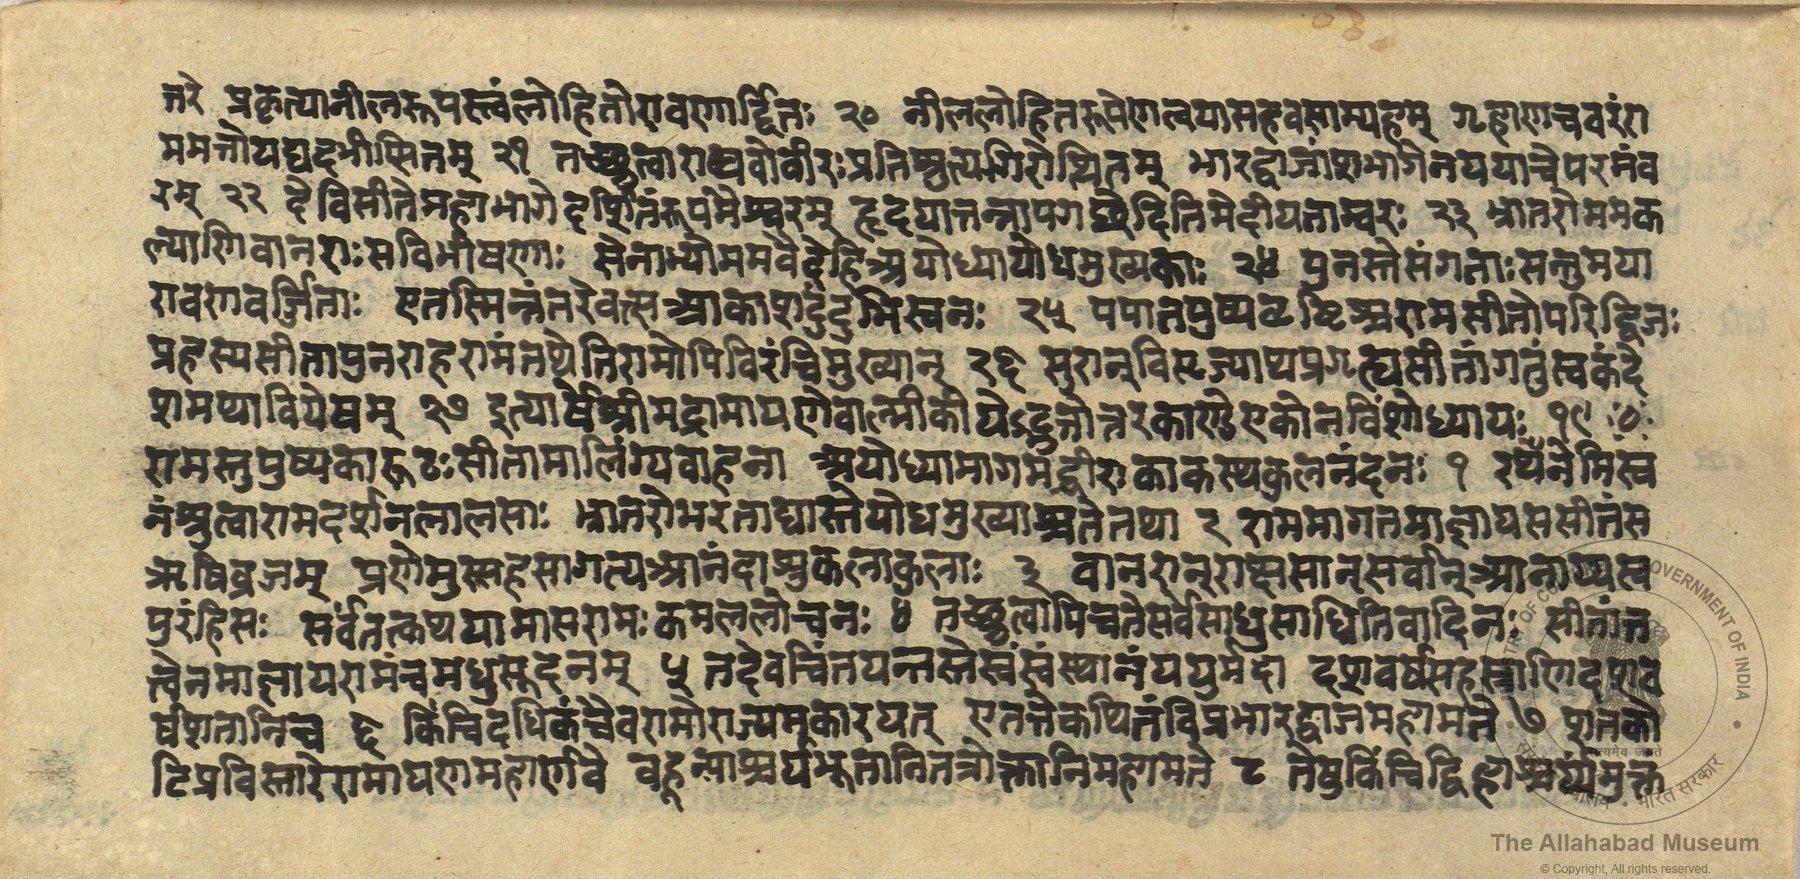 त्तरे प्रकृत्यानीलरूपस्त्वंलोहितोरावणार्द्दितः २० नीललोहितरूपेणत्वयासहवसाम्यहम् गृहाणचवरंरा
ममत्तोयद्यदभीप्सितम् २१ तच्छ्रुत्वाराघवोवीरःप्रतिश्रुत्यगिरोत्थितम् भारद्वाजांशभागेनययाचेपरमंव
रम् २२ देविसीतेमहाभागेदर्शितंरूपमैश्वरम् हृदयात्तन्नापगच्छेदितिमेदीयताम्वरः २३ भ्रातरोममक
ल्याणिवानराःसविभीषणाः सेनाभ्योममवैदेहिअयोध्यायोधमुख्यकाः २४ पुनस्तेसंगताःसन्तुमया
रावणवर्जिताः एतस्मिन्नंतरेवत्सआकाशेदुंदुभिस्वनः २५ पपातपुष्पवृष्टिश्चरामसीतोपरिद्विजः
प्रहस्यसीतापुनराहरामंतथेतिरामोपिविरंचिमुख्यान् २६ सुरान्विसृज्याथप्रगृह्यसीतांगतुंस्वकंदे
शमथाविचेषम् २७ इत्यार्षेश्रीमद्रामायणेवाल्मीकीयेऽद्भुतोत्तरकाण्डेएकोनविंशोध्यायः १९
रामस्तुपुष्पकारूढःसीतामालिंग्यवाहना अयोध्यामागमद्वीरःकाकस्थकुलनंदनः १ रथनेमिस्व
नंश्रुत्वारामदर्शनलालसाः भ्रातरोभरताद्यास्तेयोधमुख्याश्चतेतथा २ राममागतमाज्ञायससीतंस
ऋषिव्रजम् प्रणेमुस्सहसागत्यआनंदाश्रुकलाकुलाः ३ वानरान्राक्षसान्सर्वान्आनाय्यस्व
पुरंहिसः सर्वंतत्कथयामासरामःकमललोचनः ४ तच्छ्रुत्वापिचतेसर्वेसाधुसाध्वितिवादिनः सीतांत
त्वेनमाज्ञायरामंचमधुसूदनम् ५ तदेवचिंतयन्तस्तेस्वंस्वंस्थानंययुर्मदा दशवर्षसहस्राणिदशव
र्षशतानिच ६ किंचिदधिकंचैवरामोराज्यमकारयत् एतत्तेकथितंविप्रभारद्वाजमहामते ७ शतको
टिप्रविस्तारेरामायणमहार्णवे वहून्याश्चर्यभूतानितत्रोक्तानिमहामते ८ तेषुकिंचिद्धिह्याश्चर्यमुक्त
The Allahabad Museum
© Copyright, All rights reserved.